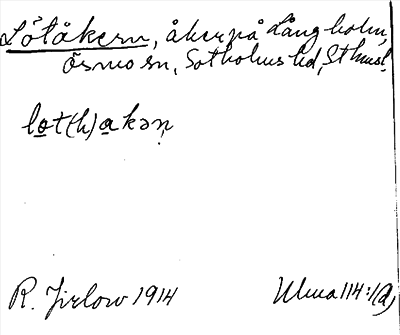 Lötåkern, åker på Långholm,
Ösmo sn, Sotholms hd, Sthmsl.
lot(h)akəṇ
R. Jirlow 1914 Ulma 114:1(a)